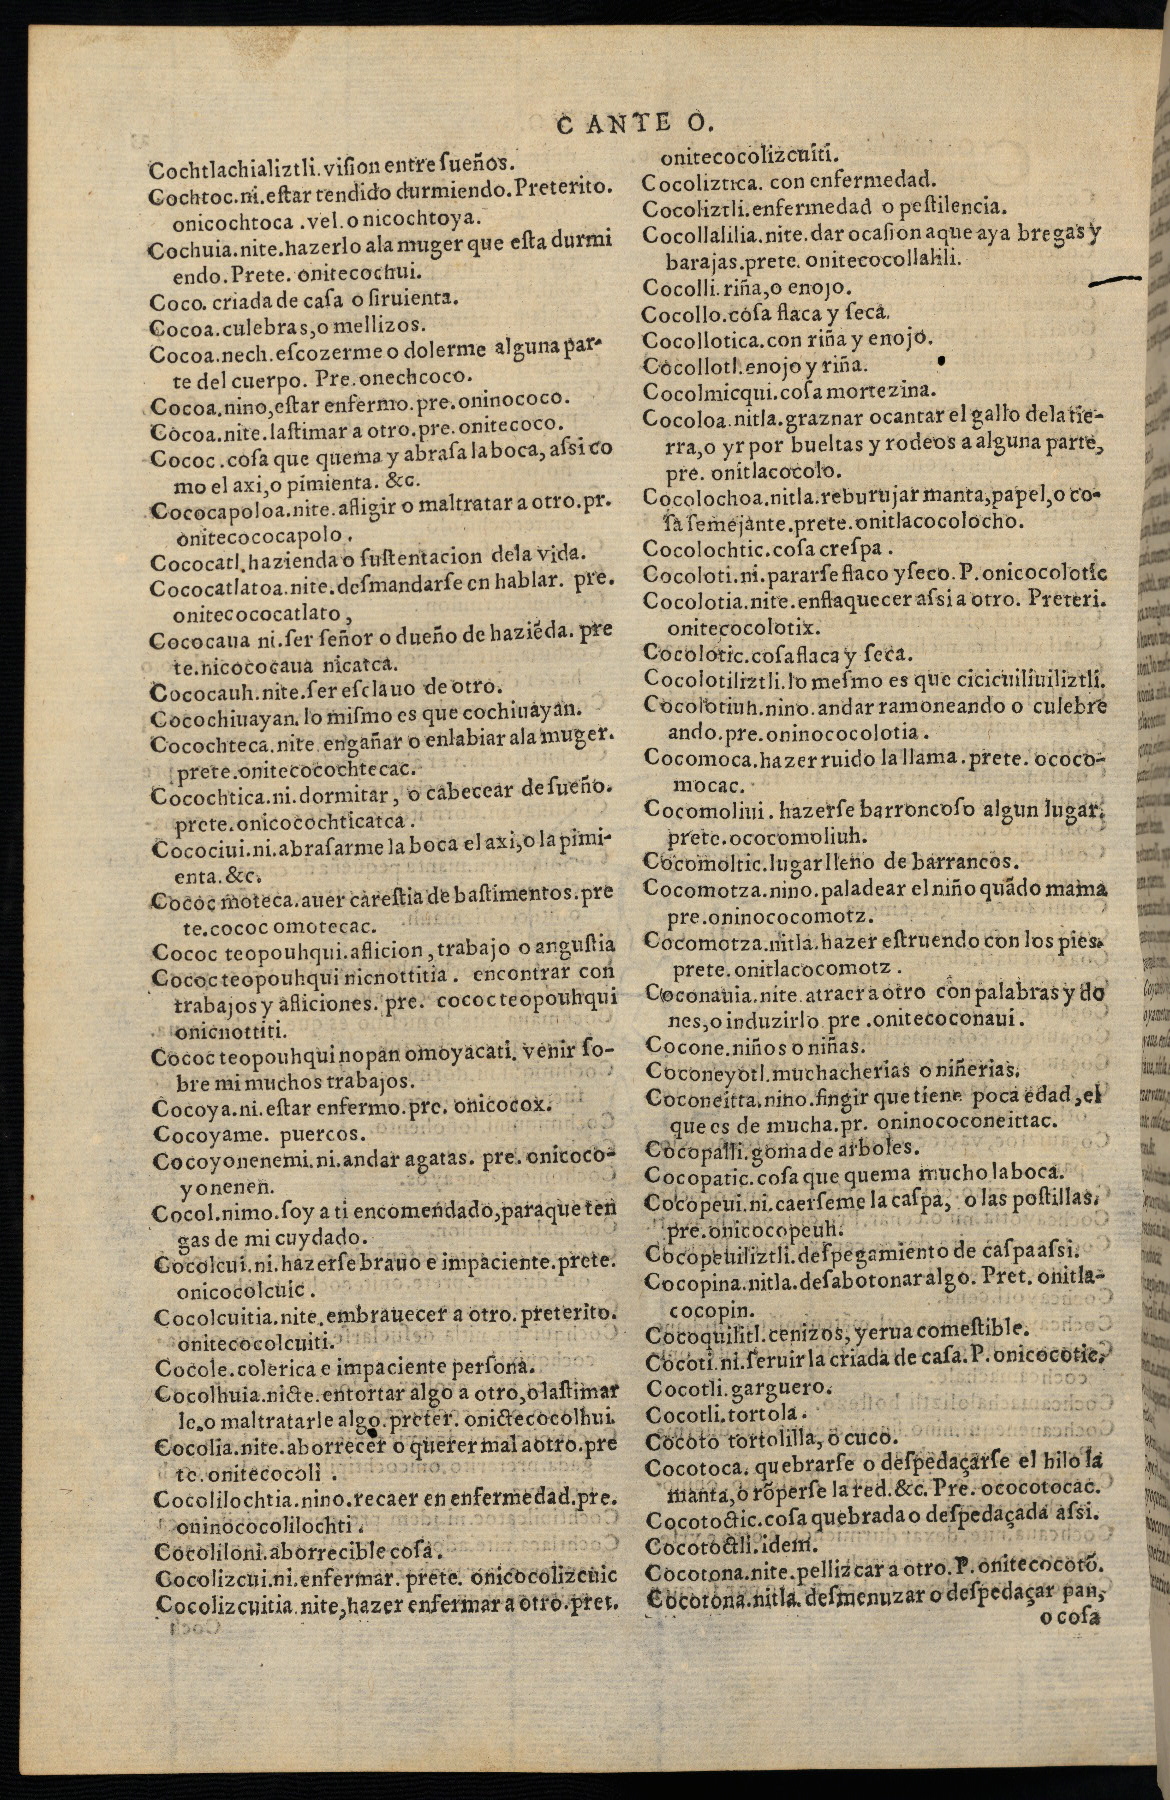 C ANTE O.
Cochtlachializtli.viſion entre ſueños.
Cochtoc.ni.eſtar tendido durmiendo.Preterito.
onicochtoca .vel.onicochtoya.
Cochuia.nite.hazerlo ala muger que eſta durmi
endo.Prete. onitecochui.
Coco. criada de caſa o ſiruienta.
Cocoa.culebras,o mellizos.
Cocoa.nech.eſcozerme o dolerme alguna par-
te del cuerpo. Pre.onechcoco.
Cocoa.nino,eſtar enfermo.pre.oninococo.
Cocoa.nite.laſtimar a otro.pre.onitecoco.
Cococ.coſa que quema y abraſa la boca, aſsi co
mo el axi,o pimienta. &c.
Cococapoloa.nite.afligir o maltratar a otro.pr.
onitecococapolo.
Cococatl.hazienda o ſuſtentacion dela vida.
Cococatlatoa.nite.deſmandarſe en hablar. pre.
onitecococatlato,
Cococaua ni.ſer ſeñor o dueño de haziẽda. pre
te.nicococaua nicatca.
Cococauh.nite.ſer eſclauo de otro.
Cocochiuayan.lo miſmo es que cochiuayan.
Cocochteca.nite.engañar o enlabiar ala muger.
prete.onitecocochtecac.
Cocochtica.ni.dormitar, o cabecear de ſueño.
prete.onicocochticatca.
Cocociui.ni.abraſarme la boca el axi,o la pimi-
enta.&c.
Cococ moteca.auer careſtia de baſtimentos.pre
te.cococ omotecac.
Cococ teopouhqui.aflicion,trabajo o anguſtia
Cococ teopouhqui nicnottitia. encontrar con
trabajos y afliciones. pre. cococ teopouhqui
onicnottiti.
Cococ teopouhqui nopan omoyacati. venir ſo-
bre mi muchos trabajos.
Cocoya.ni.eſtar enfermo.pre. onicocox.
Cocoyame. puercos.
Cocoyonenemi.ni.andar agatas. pre. onicoco-
yonenen.
Cocol.nimo.ſoy a ti encomendado,paraque ten
gas de mi cuydado.
Cocolcui.ni.hazerſe brauo e impaciente.prete.
onicocolcuic.
Cocolcuitia.nite.embrauecer a otro.preterito.
onitecocolcuiti.
Cocole.colerica e impaciente perſona.
Cocolhuia.nicte.entortar algo a otro,o laſtimar
le.o maltratarle algo.preter. onictecocolhui.
Cocolia.nite.aborrecer o querer mal a otro.pre
te.onitecocoli .
Cocolilochtia.nino.recaer en enfermedad.pre.
oninococolilochti.
Cocoliloni.aborrecible coſa.
Cocolizcui.ni.enfermar. prete. onicocolizcuic
Cocolizcuitia.nite,hazer enfermar a otro.pret.
onitecocolizcuiti.
Cocoliztica. con enfermedad.
Cocoliztli.enfermedad o peſtilencia.
Cocollalilia.nite.dar ocaſion a que aya bregas y
barajas.prete. onitecocollalili.
Cocolli.riña,o enojo.
Cocollo.coſa flaca y ſeca.
Cocollotica.con riña y enojo.
Cocollotl.enojo y riña.
Cocolmicqui.coſa mortezina.
Cocoloa.nitla.graznar ocantar el gallo dela tie-
rra,o yr por bueltas y rodeos a alguna parte,
pre. onitlacocolo.
Cocolochoa.nitla.reburujar manta,papel,o co-
ſa ſemejante.prete.onitlacocolocho.
Cocolochtic.coſa creſpa.
Cocoloti.ni.pararſe flaco y ſeco.P.onicocolotic
Cocolotia.nite.enflaquecer aſsi a otro. Preteri.
onitecocolotix.
Cocolotic.coſa flaca y ſeca.
Cocolotiliztli.lo meſmo es que cicicuiliuiliztli.
Cocolotiuh.nino.andar ramoneando o culebre
ando.pre.oninococolotia.
Cocomoca.hazer ruido la llama.prete. ococo-
mocac.
Cocomoliui. hazerſe barroncoſo algun lugar.
prete.ococomoliuh.
Cocomoltic.lugar lleno de barrancos.
Cocomotza.nino.paladear el niño quãdo mama
pre.oninococomotz.
Cocomotza.nitla.hazer eſtruendo con los pies.
prete.onitlacocomotz.
Coconauia.nite.atraer a otro con palabras y do
nes,o induzirlo pre .onitecoconaui.
Cocone.niños o niñas.
Coconeyotl.muchacherias o niñerias.
Coconeitta.nino.fingir que tiene poca edad,el
que es de mucha.pr. oninococoneittac.
Cocopalli.goma de arboles.
Cocopatic.coſa que quema mucho la boca.
Cocopeui.ni.caerſeme la caſpa, o las poſtillas.
pre.onicocopeuh.
Cocopeuiliztli.deſpegamiento de caſpa aſsi.
Cocopina.nitla.deſabotonar algo. Pret. onitla-
cocopin.
Cocoquilitl.cenizos,yerua comeſtible.
Cocoti.ni.ſeruir la criada de caſa.P.onicocotic.
Cocotli.garguero.
Cocotli.tortola.
Cocoto tortolilla,o cuco.
Cocotoca. quebrarſe o deſpedaçarſe el hilo la
manta,o rõperſe la red.&c. Pre. ococotocac.
Cocotoctic.coſa quebrada o deſpedaçada aſsi.
Cocotoctli.idem.
Cocotona.nite.pellizcar a otro.P.onitecocotõ.
Cocotona.nitla.deſmenuzar o deſpedaçar pan,
o coſa